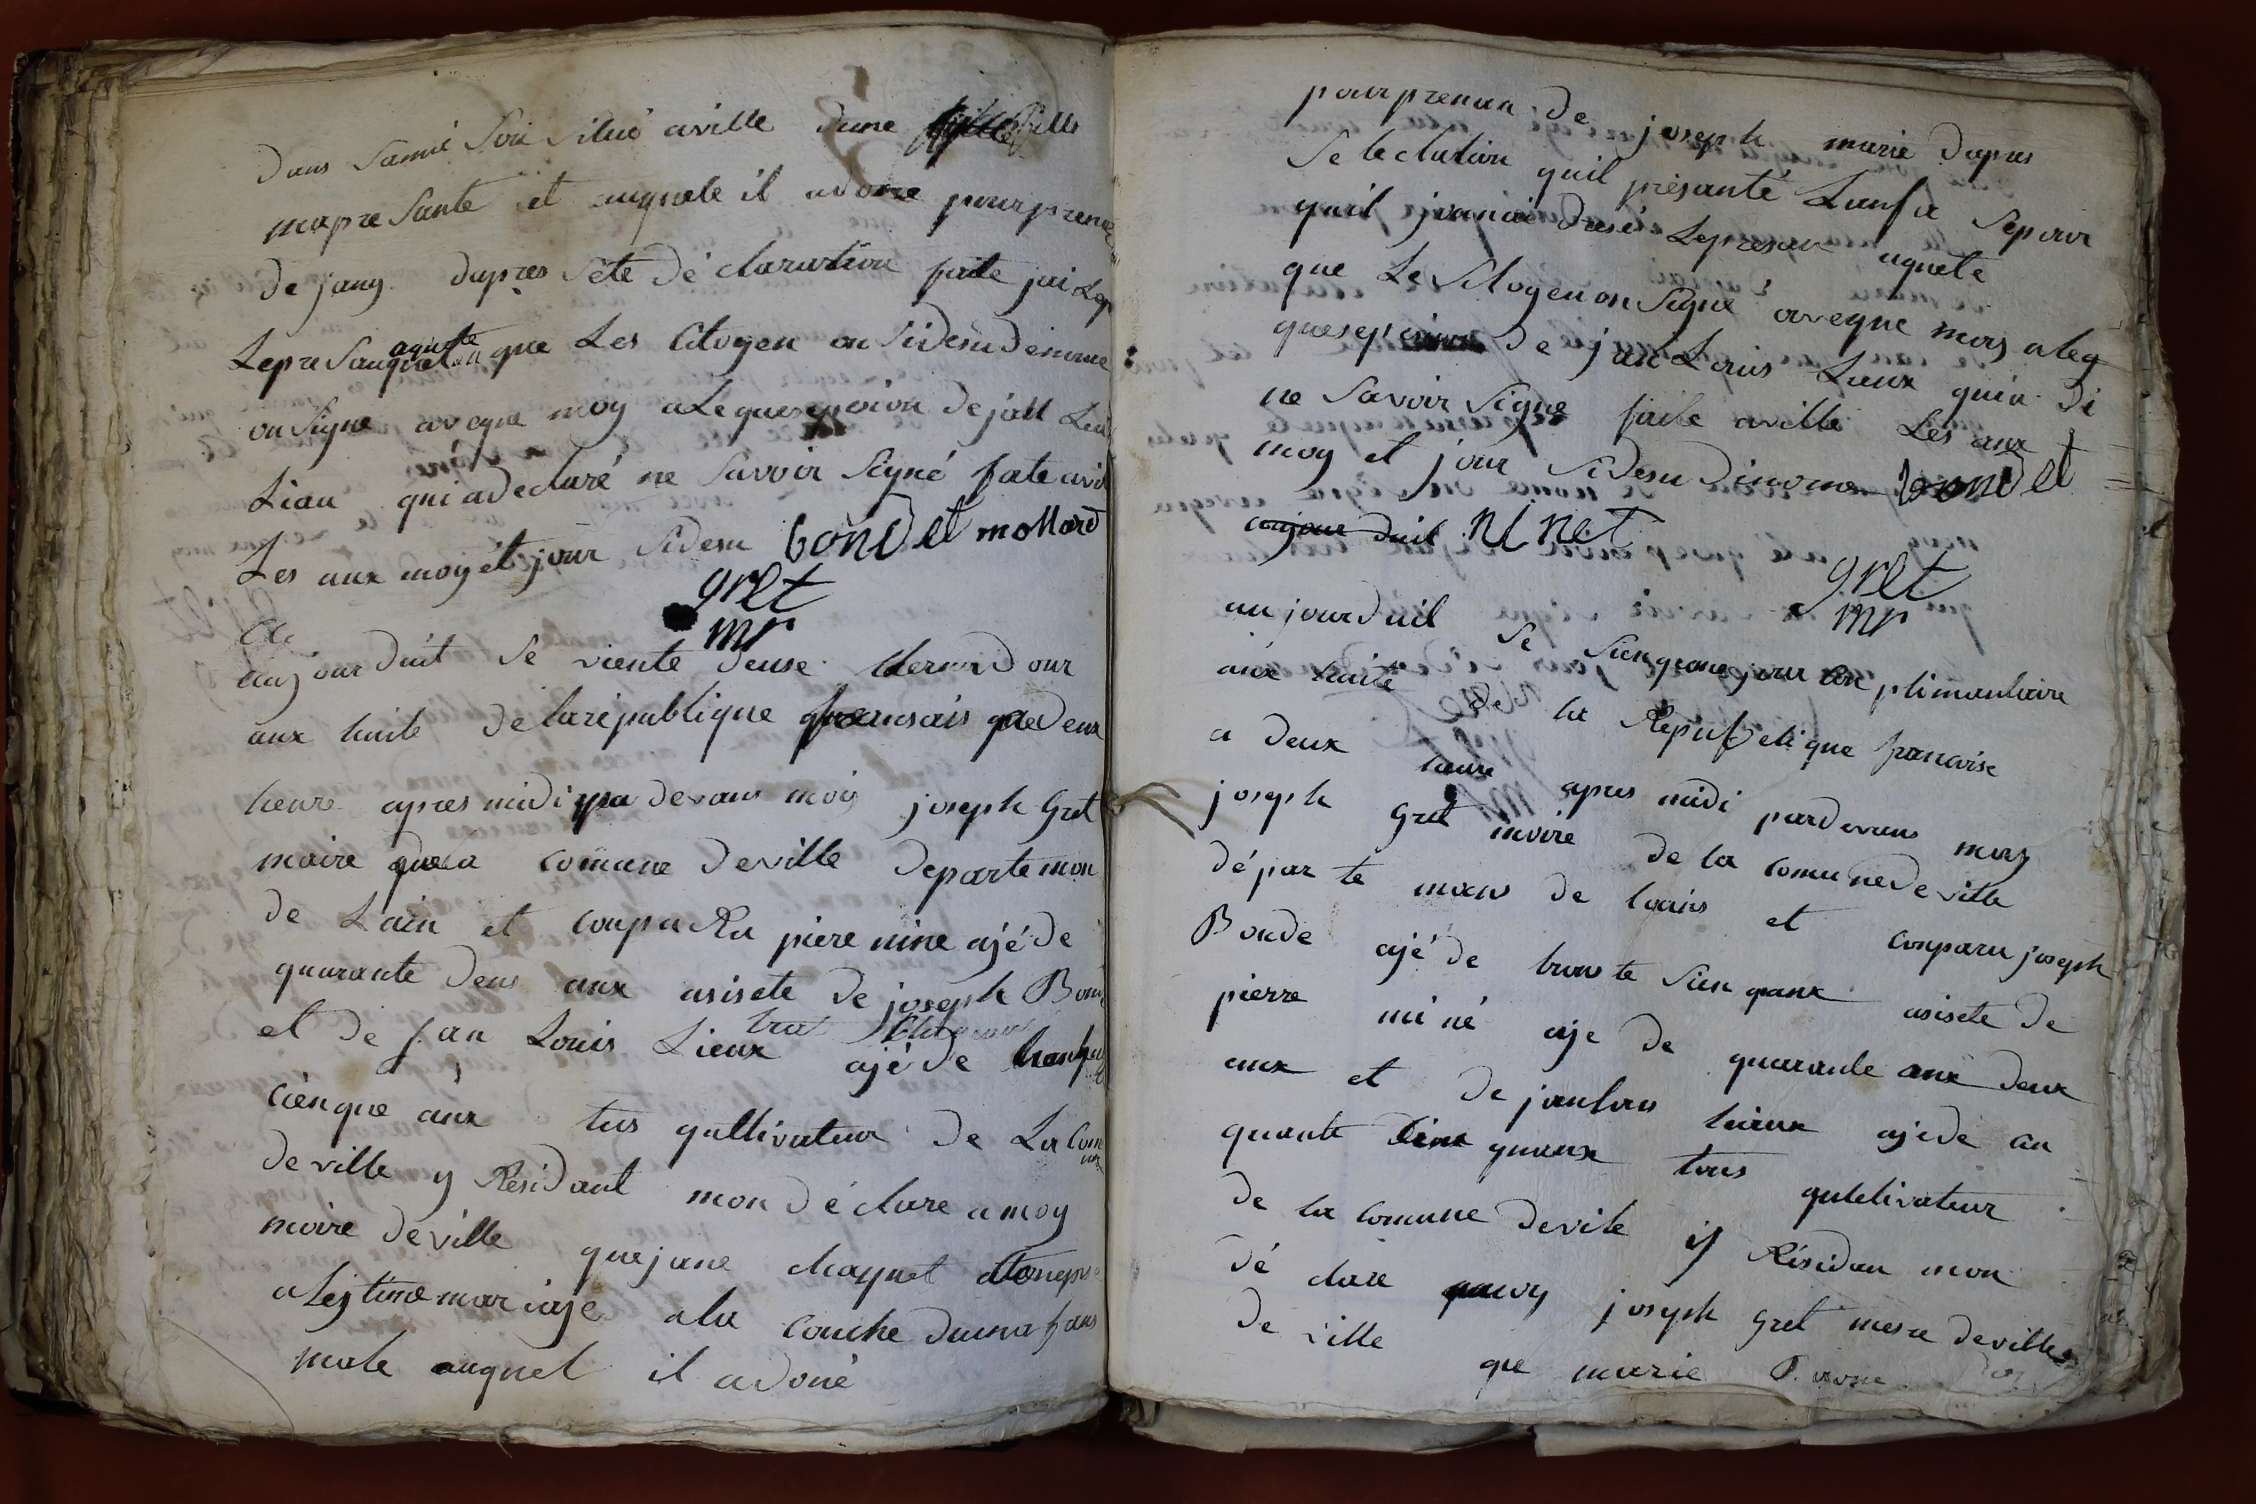 dans samé son situé aville dune fille
mapre sante et auquele il adone pour prenon
de jany dapres séte dé claration faite jai
Lepre sanq aquete que Les Citogen on sidesu denome
on signe avegne moy aLequesepsion de jan
Liau qui adeclaré ne savoir signé fate avil
Les aux moy et jour sidesu bondet mollard
gret
mr
aujourduit se viente deuse dour
aux huite de larépublique fransais a deux
heure apres midi pa devans mois joseph Gret
maire de la comune deville departemon
de Lain et conparu piere nine ajé de
quarante deus aux asisete de joseph Bon
et de jan Louis Lieux ajé de
ciènque aux tus qultivateur de La Com
deville y Résidant mon dé clare a moy
maire deville que jane chaynet
aLejtime mariaje a la couche duna fans
male auquel il adoné
pour prenon de joseph marie dapres
se leclution quil présanté Lanfa sepour
quil jranai dresé Lepresan aquete
que Le sitogen on signé avegne mois aleq
quesepsion de jan Louis Lieux quia di
ne savoir signe faite aville Les aux
moy et jour sidesu dinome bondet
aujour duit ninet
gret
mr
aujourduil se sienqeme jour con plimantaire
aux huite de la Repubelique francoise
a deux heure apres midi pardevans moy
joseph Gret moire de la comune de ville
dépar te mans de lains et conparu joseph
Bonde ajé de trante sien qaux asisete de
pierre miné aje de quarante aux deux
aux et de janlouis lieux ajede cin
quante sien quaux tous qultivateur
de la comune de vile y Résidan mon
dé clare a moy joseph Gret mere de ville
de ville que marie